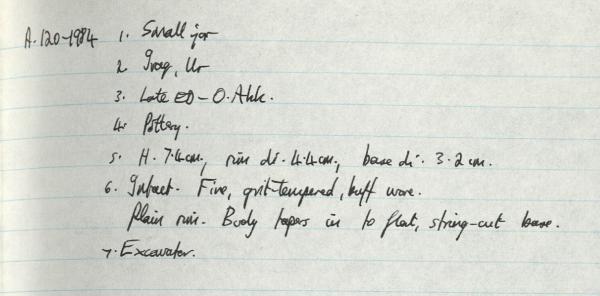 A.120-1984 1. Small jar
2. Iraq, Ur
3. Late ED - O. Akk.
4. Pottery.
5. H. 7.4cm, rim di. 4.4cm, base di. 3.2cm.
6. Intact. Fine, grit-tempered, buff ware.
Plain rim. Body tapers in to flat, string-cut base.
7. Excavator.